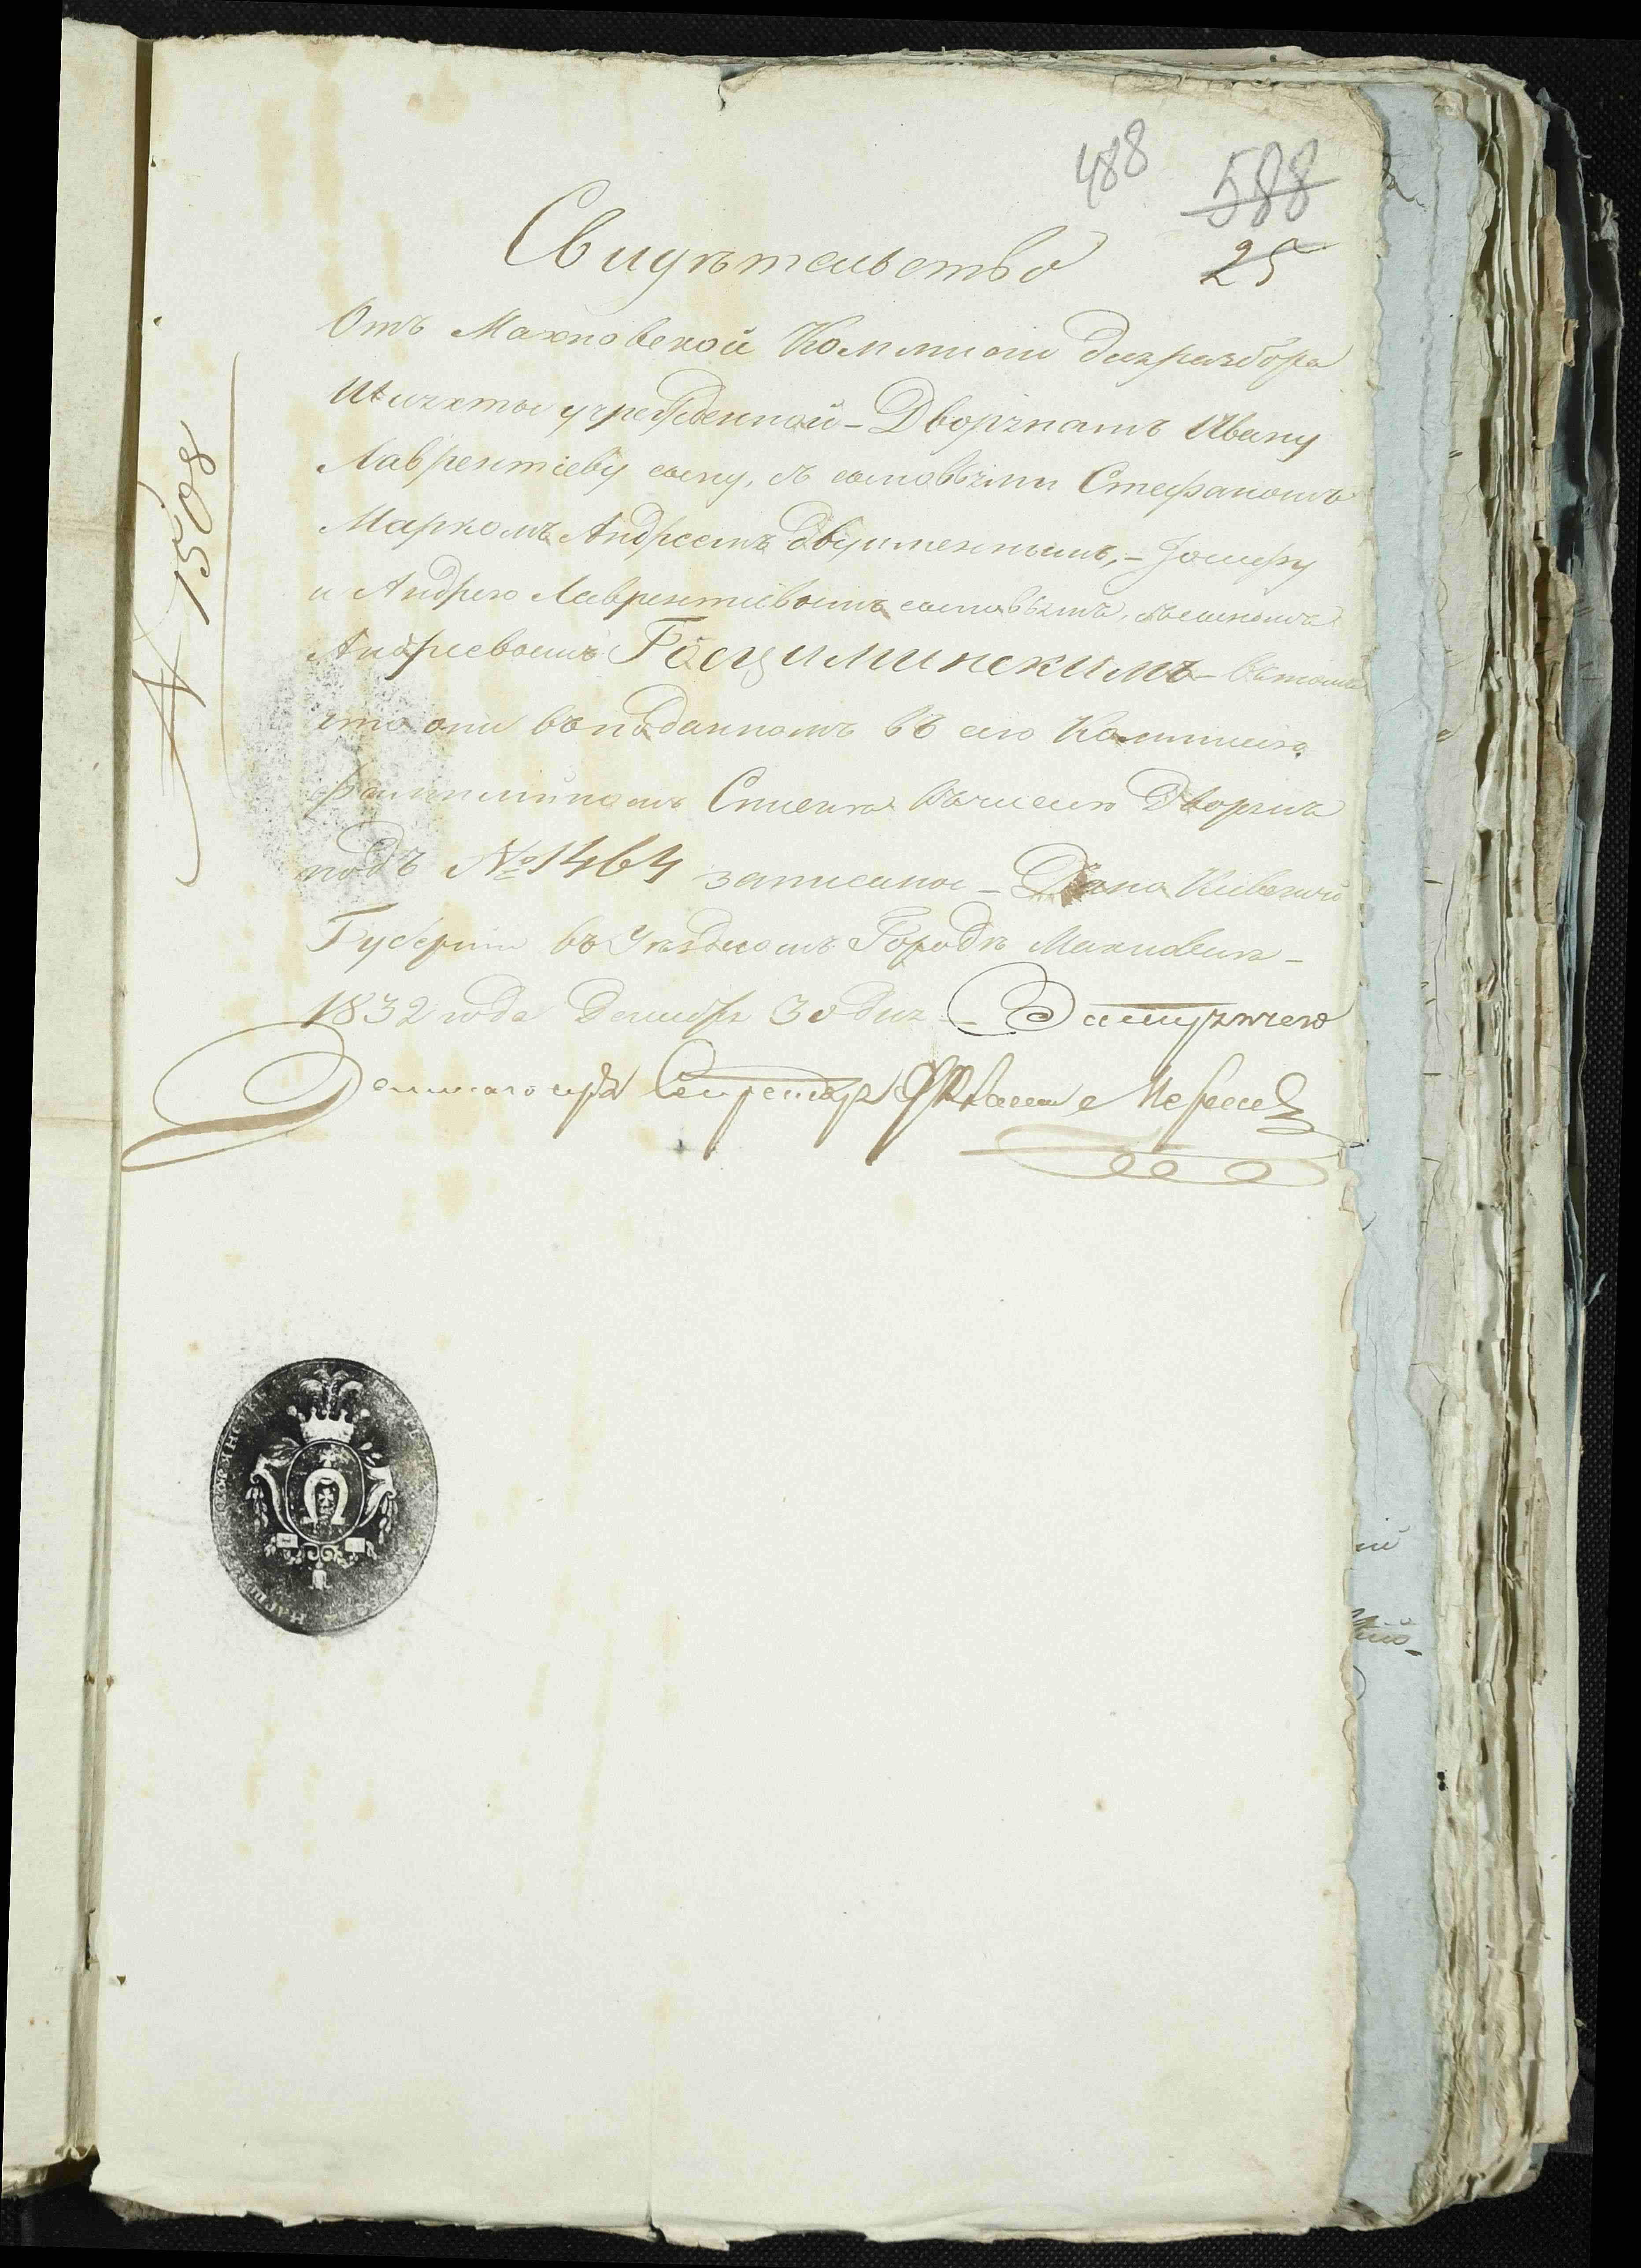 488 588
25
Свидѣтельство
Отъ Махновской Коммисіи для разбора
Шляхты учрежденной - Дворянамъ Ивану
Лаврентіеву сыну, съ сыновьями Стефаномъ
Маркомъ Андреемъ двуименнымъ, - Іосифу
и Андрею Лаврентіевымъ сыновьямъ, съ сыномъ
Андріевымъ Госциминскимъ - въ томъ
что они въ поданномъ въ сію Коммисію
фамилійномъ Спискѣ въ число Дворянъ
подъ № 1464 записаны - Дано Кіевской
Губерніи въ Уѣздномъ Городѣ Махновкѣ -
1832 года Декабря 30 дня -
Секретарь
№ 1508